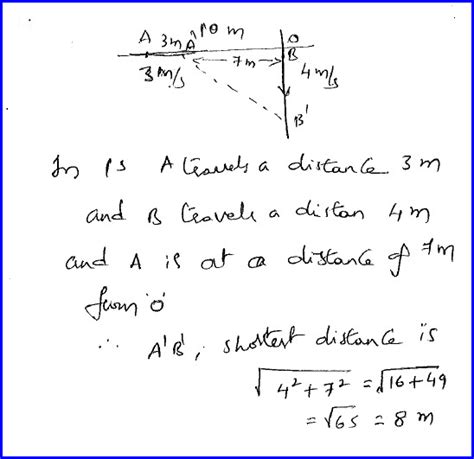 A 3m A' 10 m O
B
3 m/s 7m 4 m/s
B'
In 1s A travels a distance 3 m
and B travels a distan 4m
and A is at a distance of 7m
from 'O'
∴ A'B', shortest distance is
√4²+7² = √16+49
= √65 = 8 m